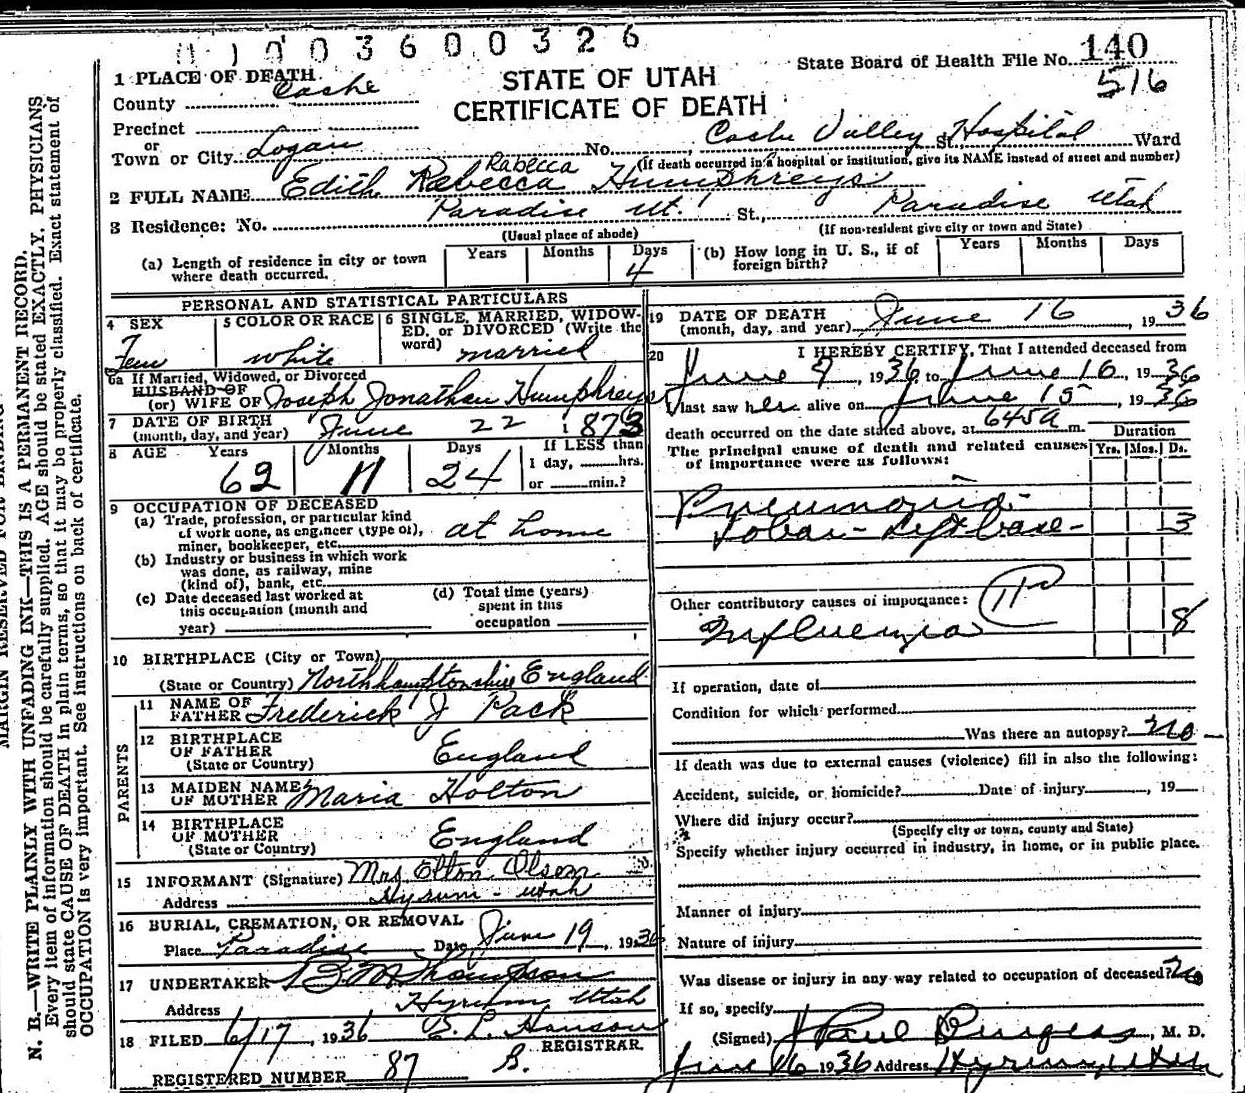 0 3 6 0 0 3 2 6
State Board of Health File No. 140
516
STATE OF UTAH
CERTIFICATE OF DEATH
1 PLACE OF DEATH
County Cache
Precinct
or
Town or City Logan No. Cache Valley St. Hospital Ward
(If death occurred in a hospital or institution, give its NAME instead of street and number)
Rabecca
2 FULL NAME Edith Rabecca Humphreys
3 Residence: No. Paradise Ut. St., Paradise Utah
(Usual place of abode) (If non-resident give city or town and State)
(a) Length of residence in city or town where death occurred. Years Months Days 4
(b) How long in U. S., if of foreign birth? Years Months Days
PERSONAL AND STATISTICAL PARTICULARS
4 SEX Fem
5 COLOR OR RACE white
6 SINGLE, MARRIED, WIDOWED, or DIVORCED (Write the word) married
6a If Married, Widowed, or Divorced
HUSBAND OF
(or) WIFE OF Joseph Jonathan Humphreys
7 DATE OF BIRTH
(month, day, and year) June 22 1873
8 AGE Years 62 Months 11 Days 24 If LESS than
1 day, hrs.
or min.?
9 OCCUPATION OF DECEASED
(a) Trade, profession, or particular kind
of work done, as engineer (type of), at home
miner, bookkeeper, etc.
(b) Industry or business in which work
was done, as railway, mine
(kind of), bank, etc.
(c) Date deceased last worked at
this occupation (month and
year)
(d) Total time (years)
spent in this
occupation
10 BIRTHPLACE (City or Town)
(State or Country) Northhamptonshire England
PARENTS
11 NAME OF
FATHER Frederick J Pack
12 BIRTHPLACE
OF FATHER England
(State or Country)
13 MAIDEN NAME
OF MOTHER Maria Holton
14 BIRTHPLACE
OF MOTHER England
(State or Country)
15 INFORMANT (Signature) Mrs Elton Olsen
Address Hyrum - Utah
16 BURIAL, CREMATION, OR REMOVAL
Place Paradise Date June 19, 1936
17 UNDERTAKER B M Thompson
Address Hyrum Utah
18 FILED 6/17, 1936 B. L. Hanson
REGISTRAR.
REGISTERED NUMBER 87 B.
19 DATE OF DEATH
(month, day, and year) June 16, 1936
20 I HEREBY CERTIFY, That I attended deceased from
June 9, 1936, to June 16, 1936
I last saw her alive on June 15, 1936
death occurred on the date stated above, at 645a m.
The principal cause of death and related causes
of importance were as follows:
Duration
Yrs. Mos. Ds.
Pneumonia
Lobar - Left base - 3
Other contributory causes of importance:
Influenza 8
If operation, date of
Condition for which performed
Was there an autopsy? no
If death was due to external causes (violence) fill in also the following:
Accident, suicide, or homicide? Date of injury, 19
Where did injury occur?
(Specify city or town, county and State)
Specify whether injury occurred in industry, in home, or in public place.
Manner of injury
Nature of injury
Was disease or injury in any way related to occupation of deceased? no
If so, specify
(Signed) Paul Burgess, M. D.
June 16 1936 Address Hyrum, Utah
MARGIN RESERVED FOR BINDING
N. B.—WRITE PLAINLY WITH UNFADING INK—THIS IS A PERMANENT RECORD.
Every item of information should be carefully supplied. AGE should be stated EXACTLY. PHYSICIANS
should state CAUSE OF DEATH in plain terms, so that it may be properly classified. Exact statement of
OCCUPATION is very important. See instructions on back of certificate.